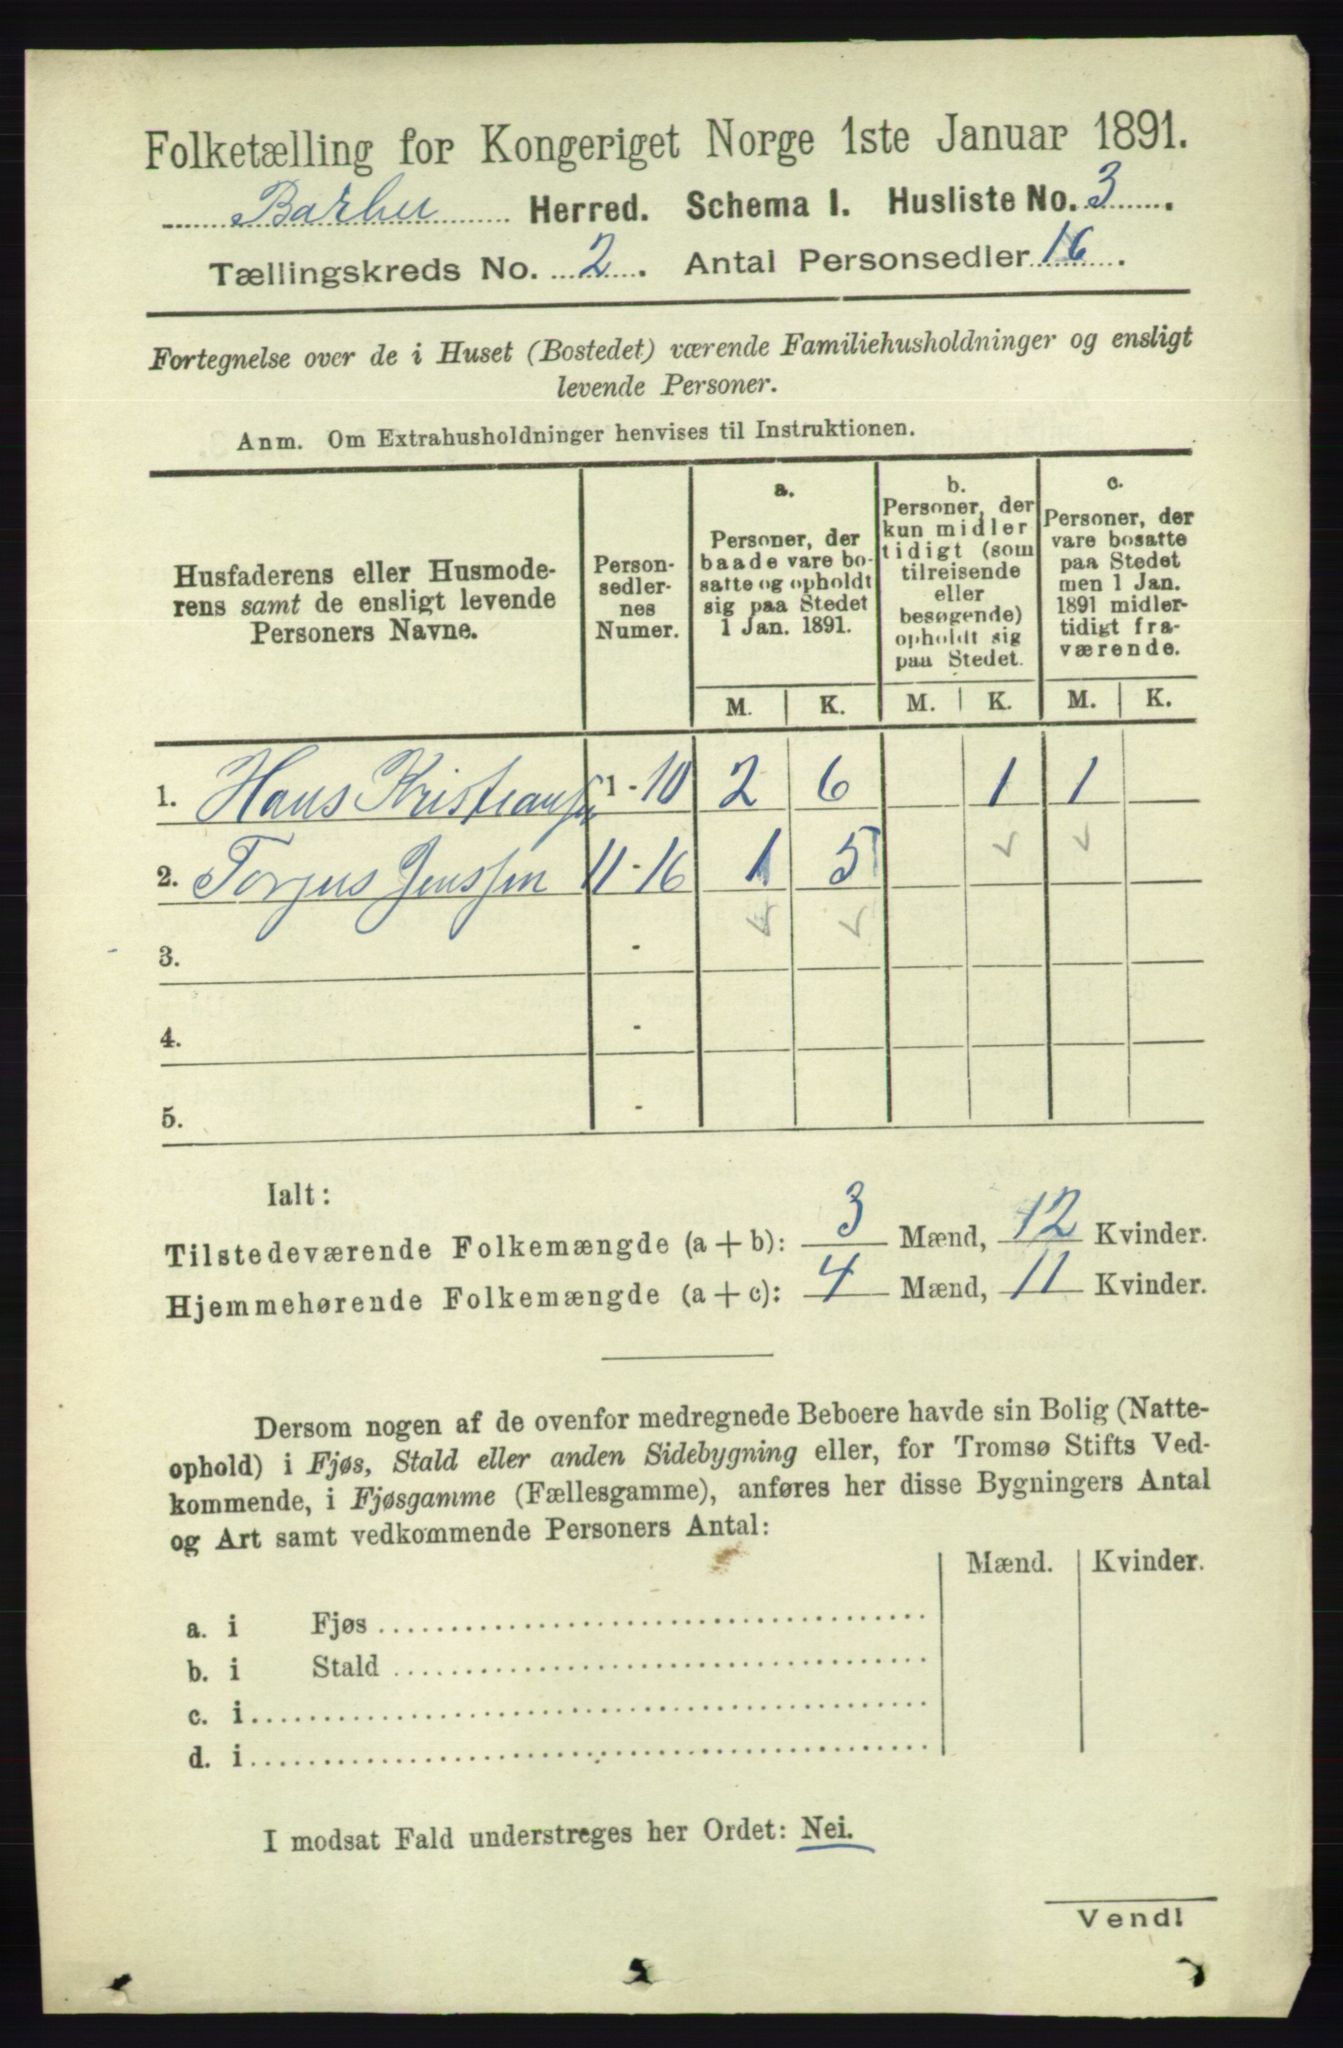 Folketælling for Kongeriget Norge 1ste Januar 1891.
Barbu Herred. Schema I. Husliste No. 3.
Tællingskreds No. 2. Antal Personsedler 16.
Fortegnelse over de i Huset (Bostedet) værende Familiehusholdninger og ensligt
levende Personer.
Anm. Om Extrahusholdninger henvises til Instruktionen.
Husfaderens eller Husmode-
rens samt de ensligt levende
Personers Navne.
Person-
sedler-
nes
Numer.
a.
Personer, der
baade vare bo-
satte og opholdt
sig paa Stedet
1 Jan. 1891.
b.
Personer, der
kun midler
tidigt (som
tilreisende
eller
besøgende)
opholdt sig
paa Stedet.
c.
Personer, der
vare bosatte
paa Stedet
men 1 Jan.
1891 midler-
tidigt fra-
værende.
M. K. M. K. M. K.
1. Hans Kristiansen 1 - 10 2 6 1 1
2. Torjus Jenssen 11 - 16 1 5
3. -
4. -
5. -
Ialt:
Tilstedeværende Folkemængde (a + b): 3 Mænd, 12 Kvinder.
Hjemmehørende Folkemængde (a + c): 4 Mænd, 11 Kvinder.
Dersom nogen af de ovenfor medregnede Beboere havde sin Bolig (Natte-
ophold) i Fjøs, Stald eller anden Sidebygning eller, for Tromsø Stifts Ved-
kommende, i Fjøsgamme (Fællesgamme), anføres her disse Bygningers Antal
og Art samt vedkommende Personers Antal:
Mænd. Kvinder.
a. i Fjøs
b. i Stald
c. i
d. i
I modsat Fald understreges her Ordet: Nei.
Vend!